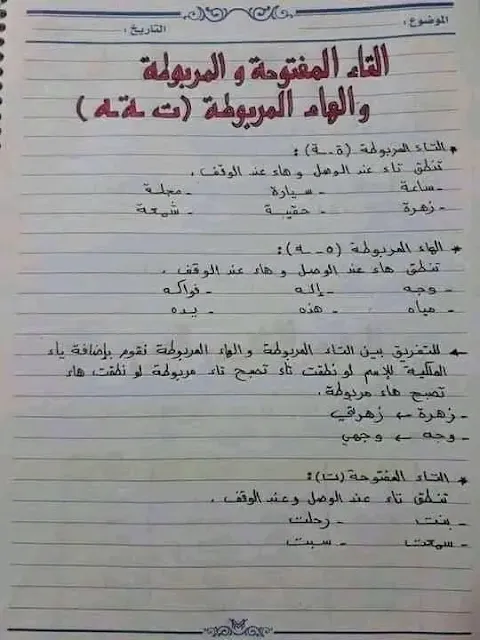 الموضوع: التاريخ:
التاء المفتوحة و المربوطة
والهاء المربوطة (ت ـة ـه)
* التاء المربوطة (ة - ـة):
تنطق تاء عند الوصل و هاء عند الوقف.
- ساعة - سيارة - مجلة
- زهرة - حقيبة - شمعة
* الهاء المربوطة (ه - ـه):
تنطق هاء عند الوصل و هاء عند الوقف.
- وجه - إله - فواكه
- مياه - هذه - يده
← للتفريق بين التاء المربوطة و الهاء المربوطة نقوم بإضافة ياء
الملكية للإسم لو نطقت تاء تصبح تاء مربوطة لو نطقت هاء
تصبح هاء مربوطة.
- زهرة ← زهرتي
- وجه ← وجهي
* التاء المفتوحة (ت):
تنطق تاء عند الوصل وعند الوقف.
- بنت - رحلت
- سمعت - سبت